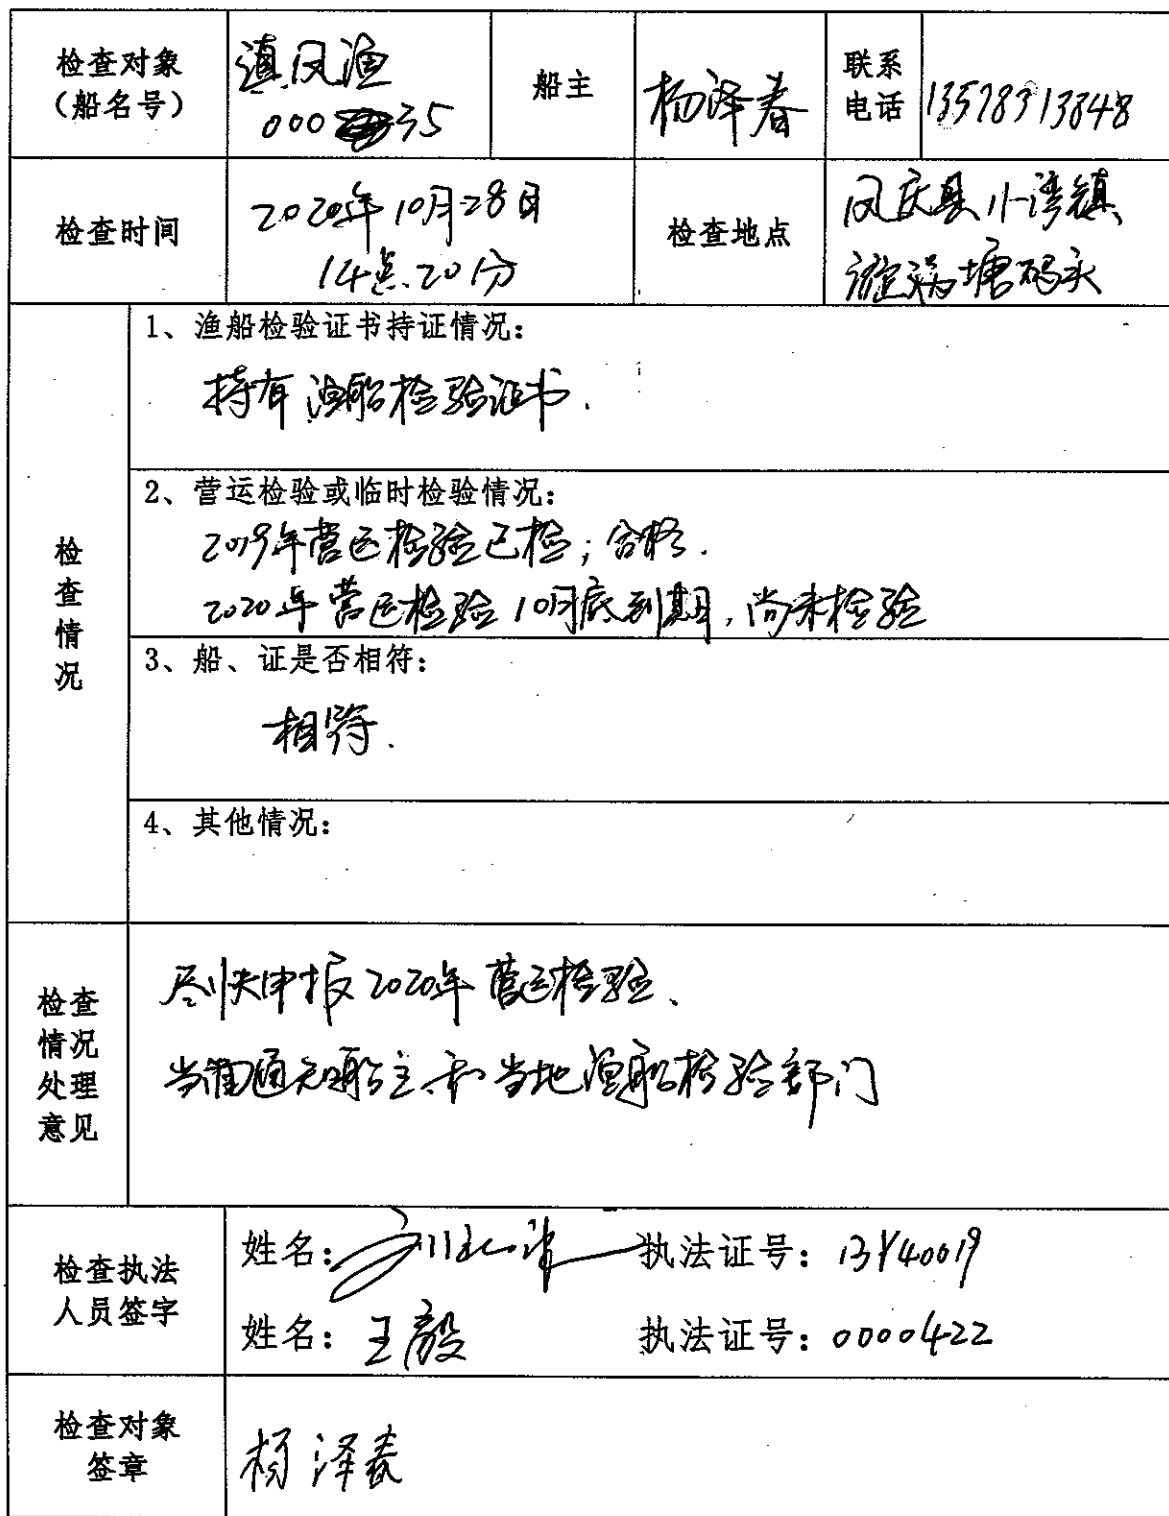 检查对象
（船名号）
滇凤渔
000 35
船主
杨泽春
联系
电话
13578313848
检查时间
2020年10月28日
14点20分
检查地点
凤庆县小湾镇
漩涡塘码头
检查情况
1、渔船检验证书持证情况：
持有渔船检验证书.
2、营运检验或临时检验情况：
2019年营运检验已检；合格.
2020年营运检验10月底到期，尚未检验
3、船、证是否相符：
相符.
4、其他情况：
检查
情况
处理
意见
尽快申报2020年营运检验、
当面通知船主和当地渔船检验部门
检查执法
人员签字
姓名：
执法证号：13Y40019
姓名：王毅
执法证号：0000422
检查对象
签章
杨泽春